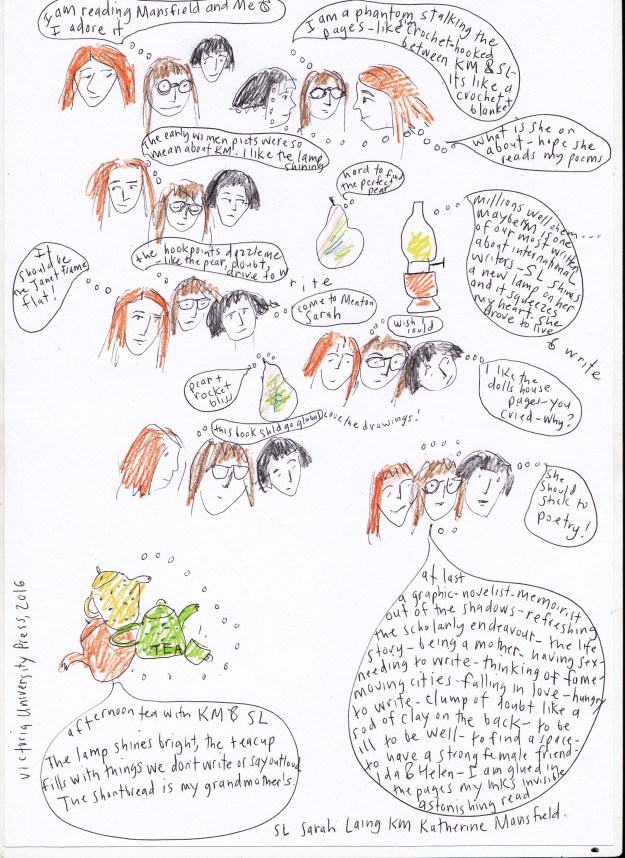 I am reading Mansfield and Me &
I adore it
I am a phantom stalking the
pages - like crochet-hooked
between KM & SL -
its like a
crochet
blanket
what is she on
about - hope she
reads my poems
The early women poets were so
mean about KM. I like the lamp
shining
hard to find
the perfect
pear
millions well ahem....
maybe KM is one
of our most written
about international
writers - SL shines
a new lamp on her
and it squeezes
my heart. She
drove to live
& write
It
should be
me Janet Frame
flat!
the hookpoints dazzle me
- like the pear, doubt,
drive to w
rite
come to Menton
Sarah
wish I
could
pear +
rocket
bliss
I like the
dolls house
pages - you
cried - why?
this book shld go global love the drawings!
she
should
stick to
poetry!
at last
a graphic-novelist-memoirist
out of the shadows - refreshing
the scholarly endeavour - the life
story - being a mother - having sex -
needing to write - thinking of fame -
moving cities - falling in love - hungry
to write - clump of doubt like a
rod of clay on the back - to be
ill to be well - to find a space -
to have a strong female friend -
Ida & Helen - I am glued in
the pages my ink's invisible
astonishing read
TEA
afternoon tea with KM & SL
The lamp shines bright, the teacup
fills with things we don't write or say out loud
The shortbread is my grandmother's.
Victoria University Press, 2016
SL Sarah Laing KM Katherine Mansfield.